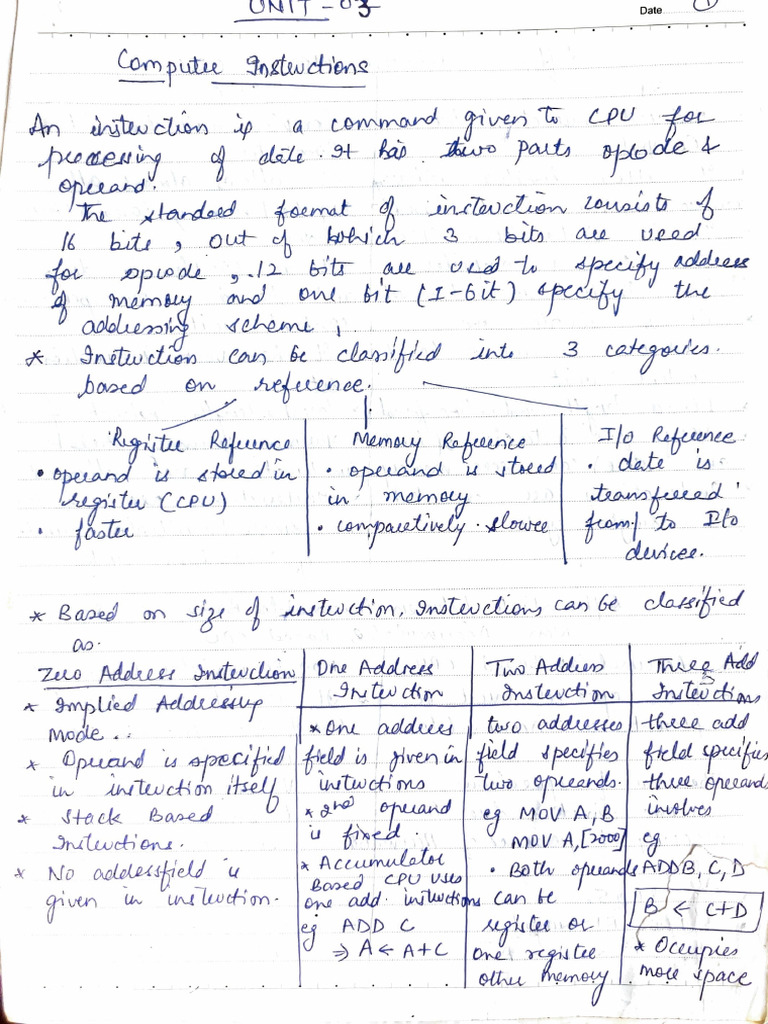 UNIT-03
Date
1
Computer Instructions
An instruction is a command given to CPU for
processing of data. It has two parts opcode &
operand.
The standard format of instruction consists of
16 bits, out of which 3 bits are used
for opcode, 12 bits are used to specify address
of memory and one bit (I-bit) specify the
addressing scheme,
* Instruction can be classified into 3 categories.
based on reference.
Register Reference
• operand is stored in
register (CPU)
• faster
Memory Reference
• operand is stored
in memory
• comparetively slower
I/O Reference
• data is
transferred
from/to I/O
devices.
* Based on size of instruction, Instructions can be classified
as.
Zero Address Instruction
* Implied Addressing
Mode.
* Operand is specified
in instruction itself
* Stack Based
Instructions.
* No addressfield is
given in instruction.
One Address
Instruction
* One address
field is given in
instructions
* 2nd operand
is fixed.
* Accumulator
Based CPU uses
one add. instructions
eg ADD C
⇒ A ← A+C
Two Address
Instruction
two addresses
field specifies
two operands.
eg MOV A, B
MOV A, [2000]
• Both operands
can be
register or
one register
other memory
Three Add
Instructions
three add
field specifies
three operands
involves
eg
ADD B, C, D
B ← C+D
* Occupies
more space